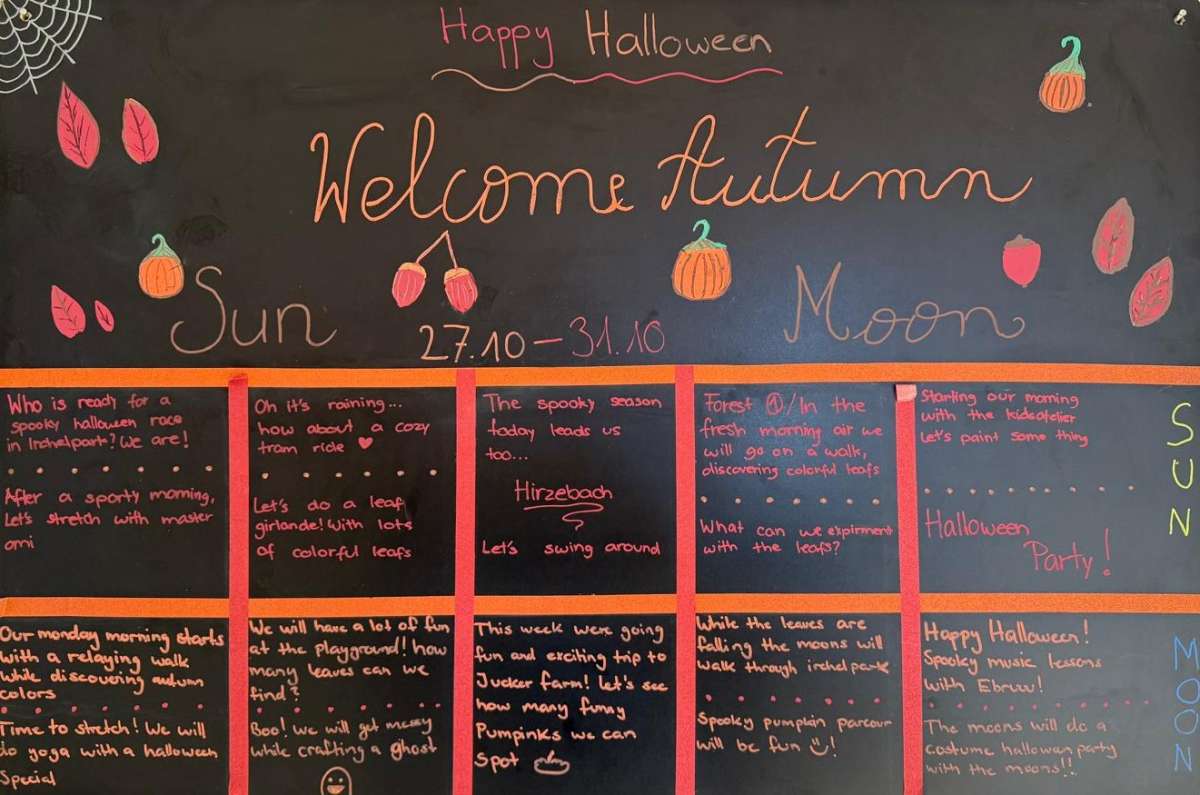 Happy Halloween
Welcome Autumn
Sun
27.10 - 31.10
Moon
Who is ready for a
spooky halloween race
in Irchelpark? We are!
After a sporty morning,
Let's stretch with master
omi
Oh it's raining...
how about a cozy
tram ride ♥
Let's do a leaf
girlande! With lots
of colorful leafs
The spooky season
today leads us
too...
Hirzebach
Let's swing around
Forest ①/In the
fresh morning air we
will go on a walk,
discovering colorful leafs
What can we expirment
with the leafs?
Starting our morning
with the kidsatelier
Let's paint some thing
Halloween
Party!
SUN
Our monday morning starts
with a relaying walk
while discovering autumn
colors
Time to stretch! We will
do yoga with a halloween
Special
We will have a lot of fun
at the playground!! how
many leaves can we
find?
Boo! We will get messy
while crafting a ghost
This week were going
fun and exciting trip to
Jucker farm! let's see
how many funny
Pumpinks we can
Spot
While the leaves are
falling the moons will
walk through irchelpark
Spooky pumpkin parcour
will be fun !
Happy Halloween!
Spooky music lessons
with Ebruu!
The moons will do a
costume hallowen party
with the moons!!
MOON